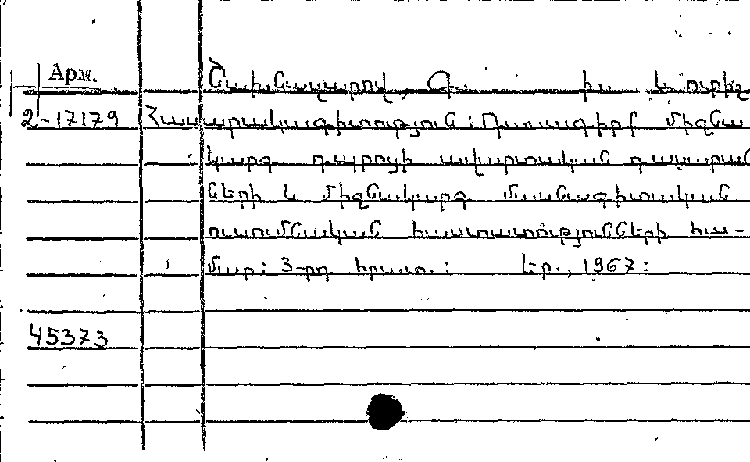 Арм.
Շախնազարով, Գ. խ. և ուրիշ
2-17179 Հասարակագիտություն: Դասագիրք միջնա
կարգ դպրոցի ավարտական դասարան
ների և միջնակարգ մասնագիտական
ուսումնական հաստատությունների հա-
մար: 3-րդ հրատ.: Եր., 1967:
45373